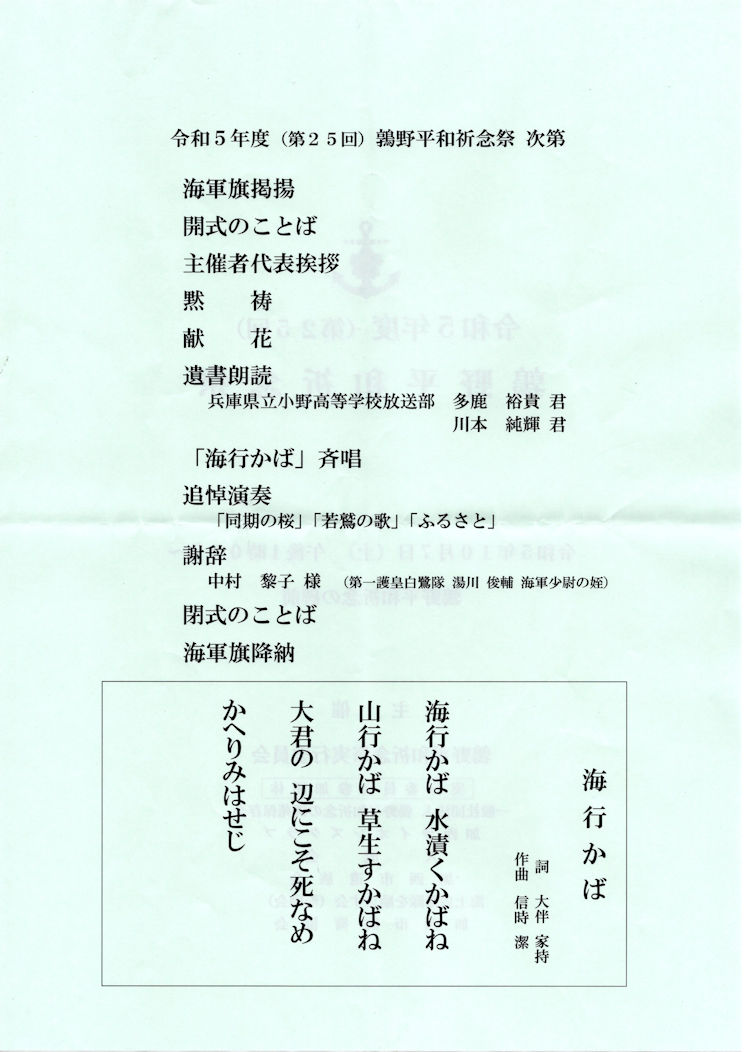 令和５年度（第２５回）鶉野平和祈念祭 次第
海軍旗掲揚
開式のことば
主催者代表挨拶
黙　　祷
献　　花
遺書朗読
兵庫県立小野高等学校放送部　多鹿　裕貴 君
川本　純輝 君
「海行かば」斉唱
追悼演奏
「同期の桜」「若鷲の歌」「ふるさと」
謝辞
中村　黎子 様　（第一護皇白鷺隊 湯川 俊輔 海軍少尉の姪）
閉式のことば
海軍旗降納
海 行 か ば
詞　大伴　家持
作曲　信時　潔
海行かば 水漬くかばね
山行かば 草生すかばね
大君の 辺にこそ死なめ
かへりみはせじ